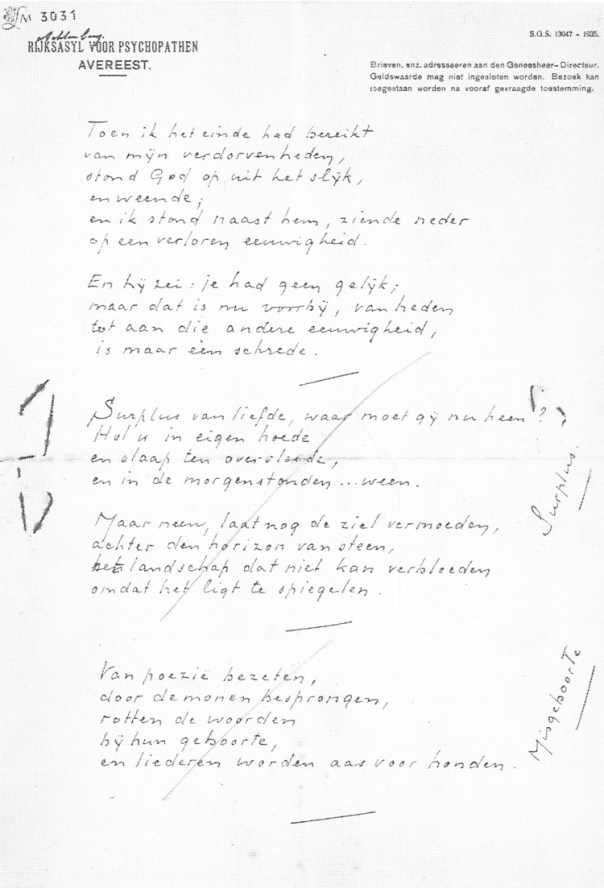 LM 3031
Achterberg
RIJKSASYL VOOR PSYCHOPATHEN
AVEREEST.
S.G.S. 13047 - 1935.
Brieven, enz. adresseeren aan den Geneesheer-Directeur.
Geldswaarde mag niet ingesloten worden. Bezoek kan
toegestaan worden na vooraf gevraagde toestemming.
Toen ik het einde had bereikt
van mijn verdorvenheden,
stond God op uit het slijk,
en weende;
en ik stond naast hem, ziende neder
op een verloren eeuwigheid.
En hij zei: je had geen gelijk;
maar dat is nu voorbij, van heden
tot aan die andere eeuwigheid,
is maar één schrede.
Surplus van liefde, waar moet gij nu heen?
Hul u in eigen hoede
en slaap ten overvloede,
en in de morgenstonden ... ween.
Maar neen, laat nog de ziel vermoeden,
achter den horizon van steen,
het landschap dat niet kan verbloeden
omdat het ligt te spiegelen.
Surplus.
Van poezië bezeten,
door demonen besprongen,
rotten de woorden
bij hun geboorte,
en liederen worden aas voor honden.
Misgeboorte